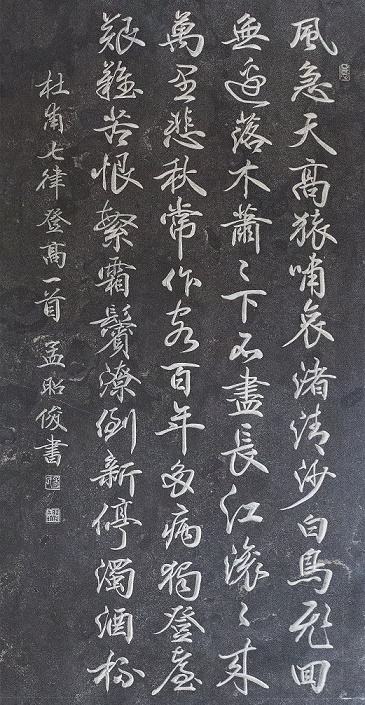 風急天高猿嘯哀渚清沙白鳥飛回
無邊落木蕭〻下不盡長江滾〻來
萬里悲秋常作客百年多病獨登臺
艱難苦恨繁霜鬢潦倒新停濁酒杯
杜甫七律登高一首 孟昭俊書